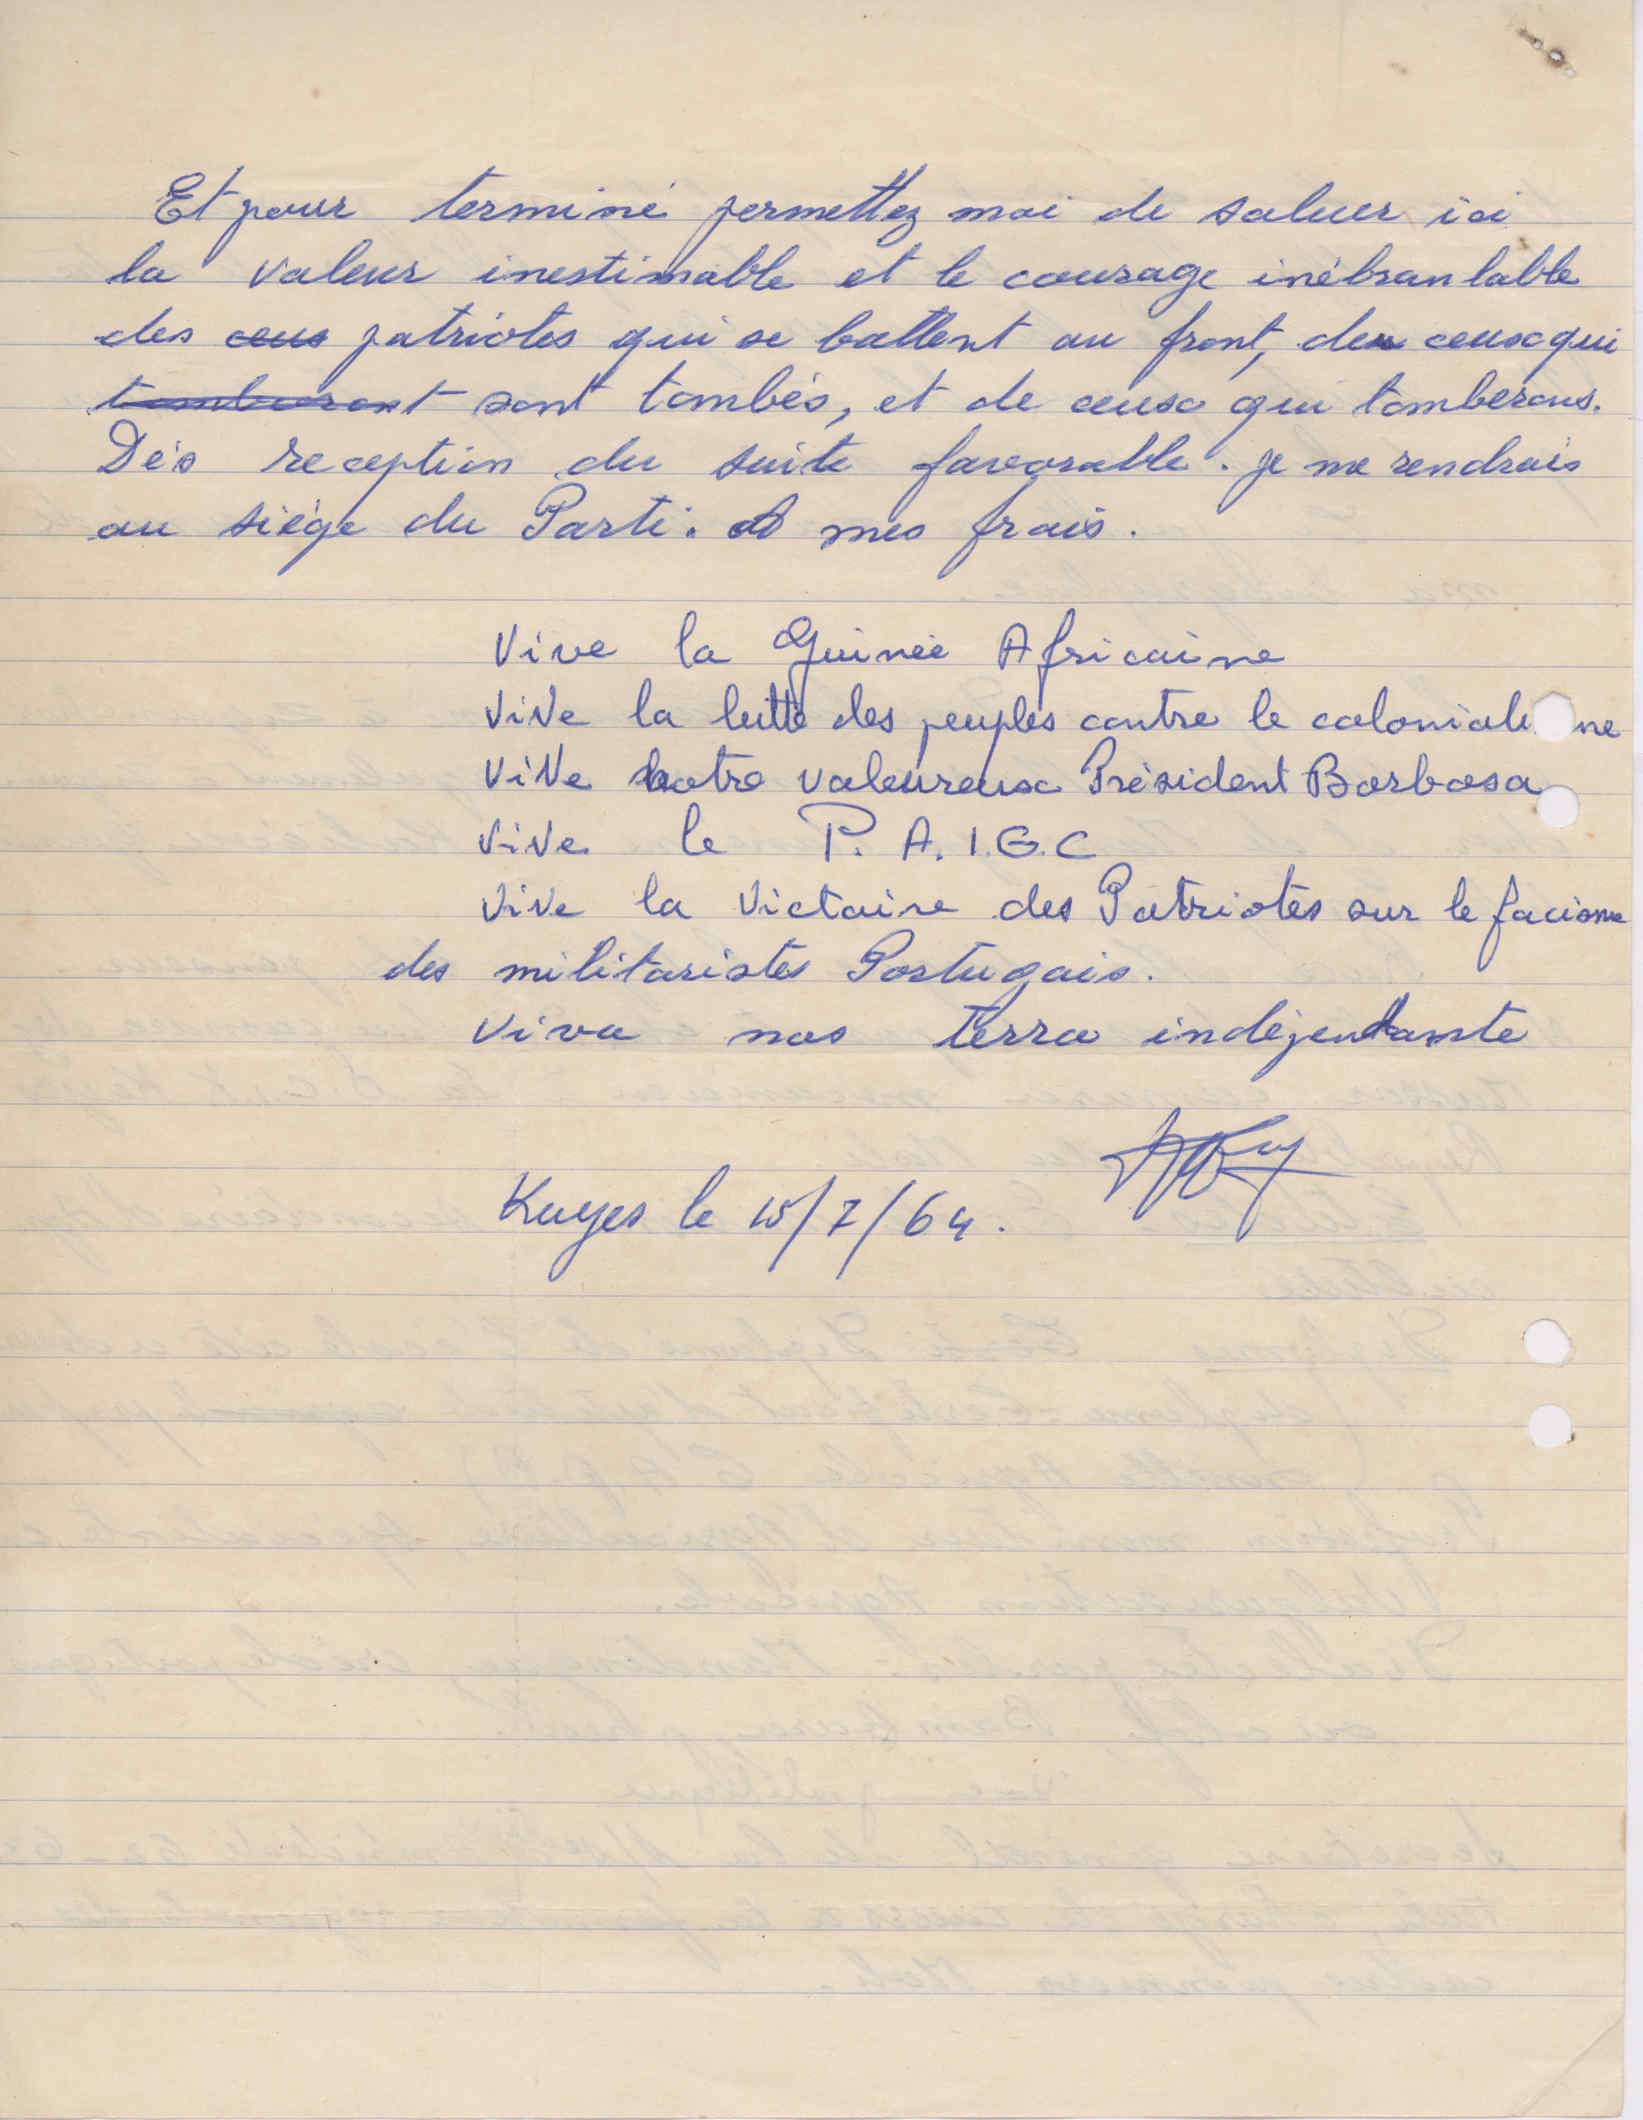 Et pour terminé permettez moi de saluer ici
la valeur inestimable et le courage inébranlable
des ceux patriotes qui se battent au front, de ceux qui
tomberont sont tombés, et de ceux qui tomberons.
Dés reception du suite favorable. je me rendrais
au siège du Parti. A mes frais.
Vive la Guinée Africaine
Vive la lutte des peuples contre le coloniali me
Vive notre valeureux Président Barbosa
Vive le P. A. I. G. C
Vive la Victoire des Patriotes sur le facisme
des militaristes Portugais.
Viva nos terra indépendante
Kayes le 15/7/64.